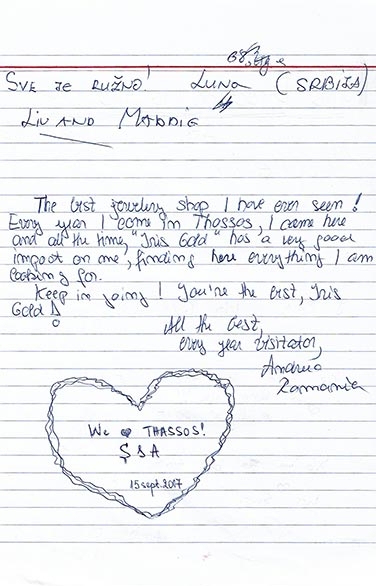 SVE JE RUŽNO! LUNA (SRBIJA)
LIV AND MADDIE
The best jewelery shop I have ever seen!
Every year I come in Thassos, I came here
and all the time, "Iris Gold" has a very good
impact on me, finding here everything I am
looking for.
Keep in going! You're the best, Iris
Gold!
All the best,
every year visitator,
Romania
We THASSOS!
S A
15 sept. 2017